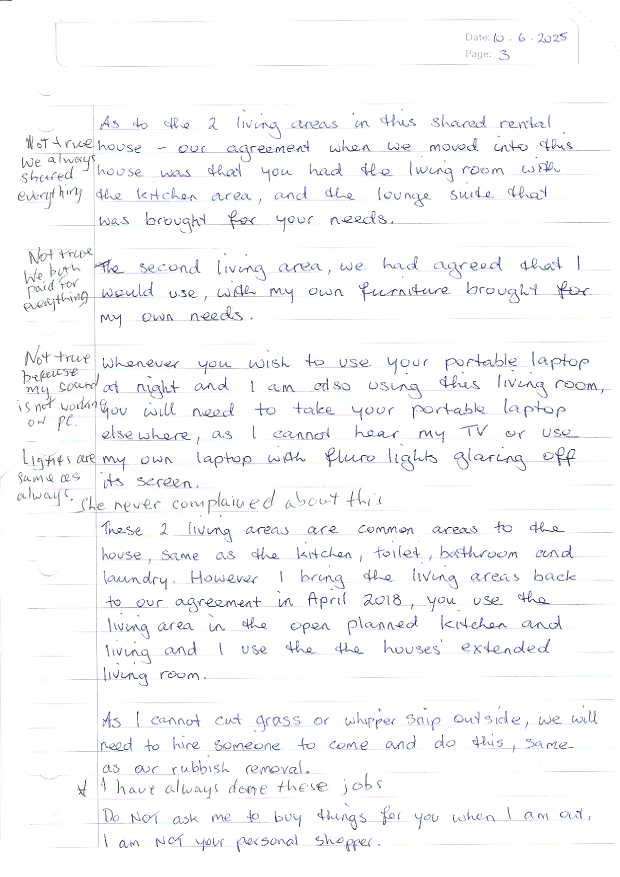 Date: 10 . 6 . 2025
Page: 3
As to the 2 living areas in this shared rental
Not true
house - our agreement when we moved into this
We always
house was that you had the living room with
shared
everything
the kitchen area, and the lounge suite that
was brought for your needs.
Not true
We both
The second living area, we had agreed that I
paid for
everything
would use, with my own furniture brought for
my own needs.
Not true
whenever you wish to use your portable laptop
because
my sound
at night and I am also using this living room,
is not working
you will need to take your portable laptop
on PC.
elsewhere, as I cannot hear my TV or use
Lights are
my own laptop with fluro lights glaring off
same as
its screen.
always.
She never complained about this
These 2 living areas are common areas to the
house, same as the kitchen, toilet, bathroom and
laundry. However I bring the living areas back
to our agreement in April 2018, you use the
living area in the open planned kitchen and
living and I use the the houses' extended
living room.
As I cannot cut grass or whipper snip outside, we will
need to hire someone to come and do this, same
as our rubbish removal.
* I have always done these jobs
Do NOT ask me to buy things for you when I am out.
I am NOT your personal shopper.